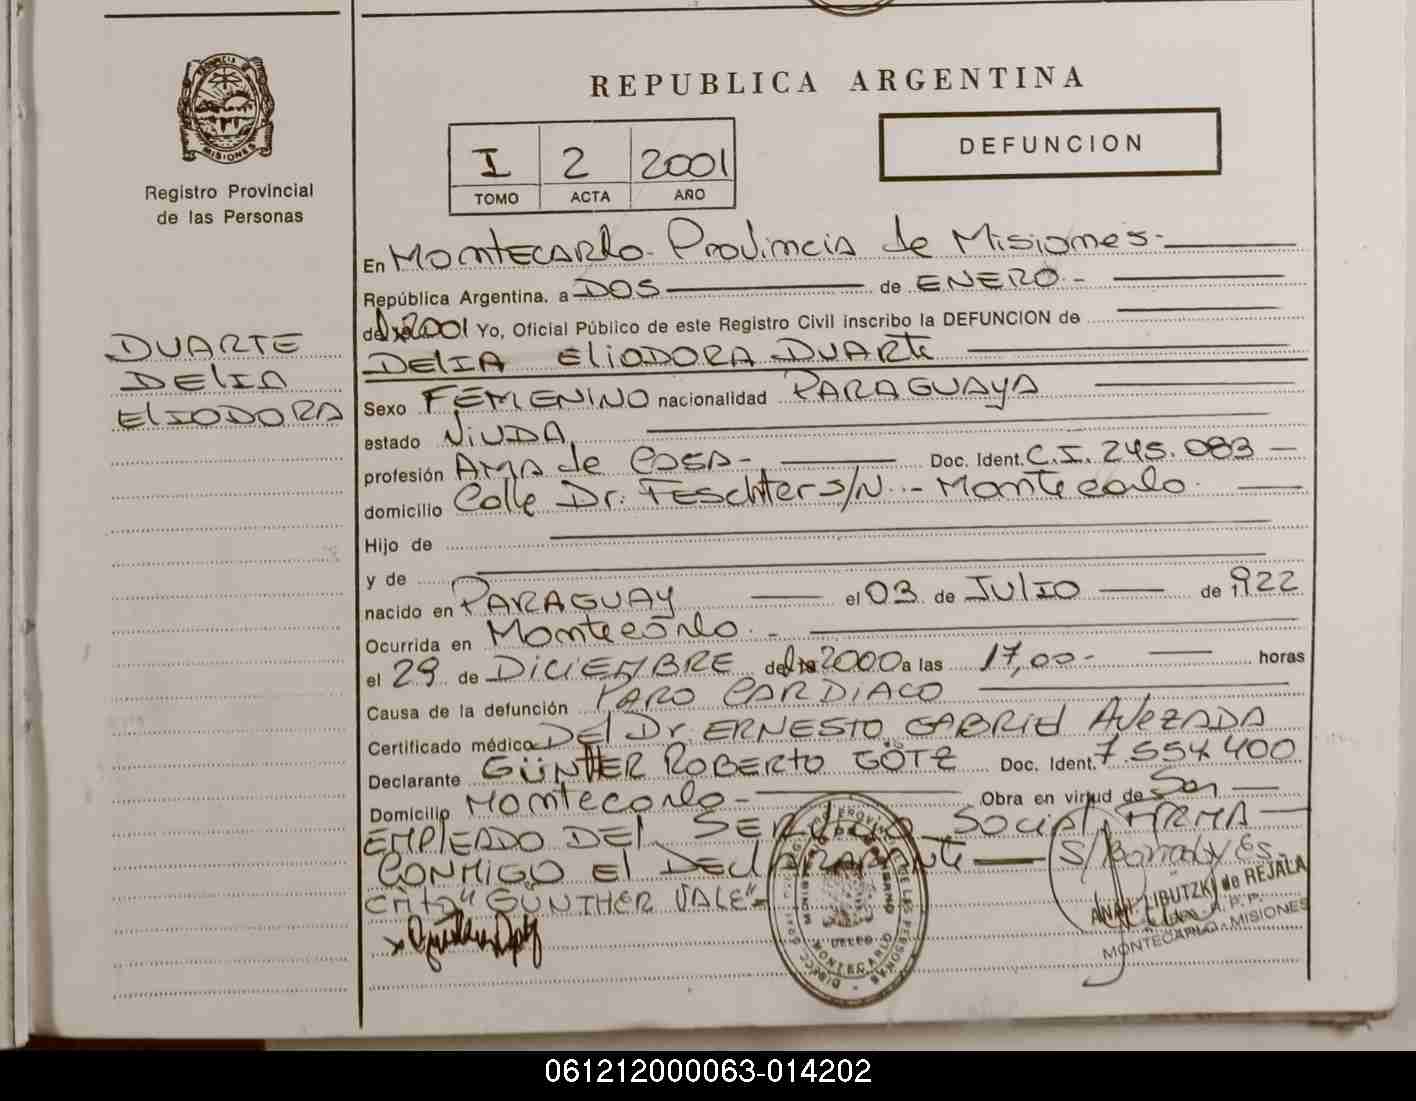 PROVINCIA DE
MISIONES
Registro Provincial
de las Personas
DUARTE
DELIA
ELIODORA
REPUBLICA ARGENTINA
I 2 2001
TOMO ACTA AÑO
DEFUNCION
En Montecarlo. Provincia de Misiones.
República Argentina. a DOS de ENERO.
de 2001 Yo, Oficial Público de este Registro Civil inscribo la DEFUNCION de
DELIA ELIODORA DUARTE
Sexo FEMENINO nacionalidad PARAGUAYA
estado VIUDA
profesión AMA de CASA- Doc. Ident. C.I. 245.083
domicilio Calle Dr. Feschter S/N.- Montecarlo.
Hijo de
y de
nacido en PARAGUAY el 03 de JULIO de 1922
Ocurrida en Montecarlo.-
el 29 de DICIEMBRE de 2000 a las 17,00- horas
Causa de la defunción PARO CARDIACO
Certificado médico DEL Dr. ERNESTO GABRIEL AVEZADA
Declarante GÜNTHER ROBERTO GÖTZ Doc. Ident. 7.554.400
Domicilio Montecarlo- Obra en virtud de Ser
EMPLEADO DEL SERVICIO SOCIAL, FIRMA
CONMIGO El DECLARANTE S/
"GÜNTHER VALE"
ANA LIBUTZKI de REJALA
MONTECARLO - MISIONES
061212000063-014202